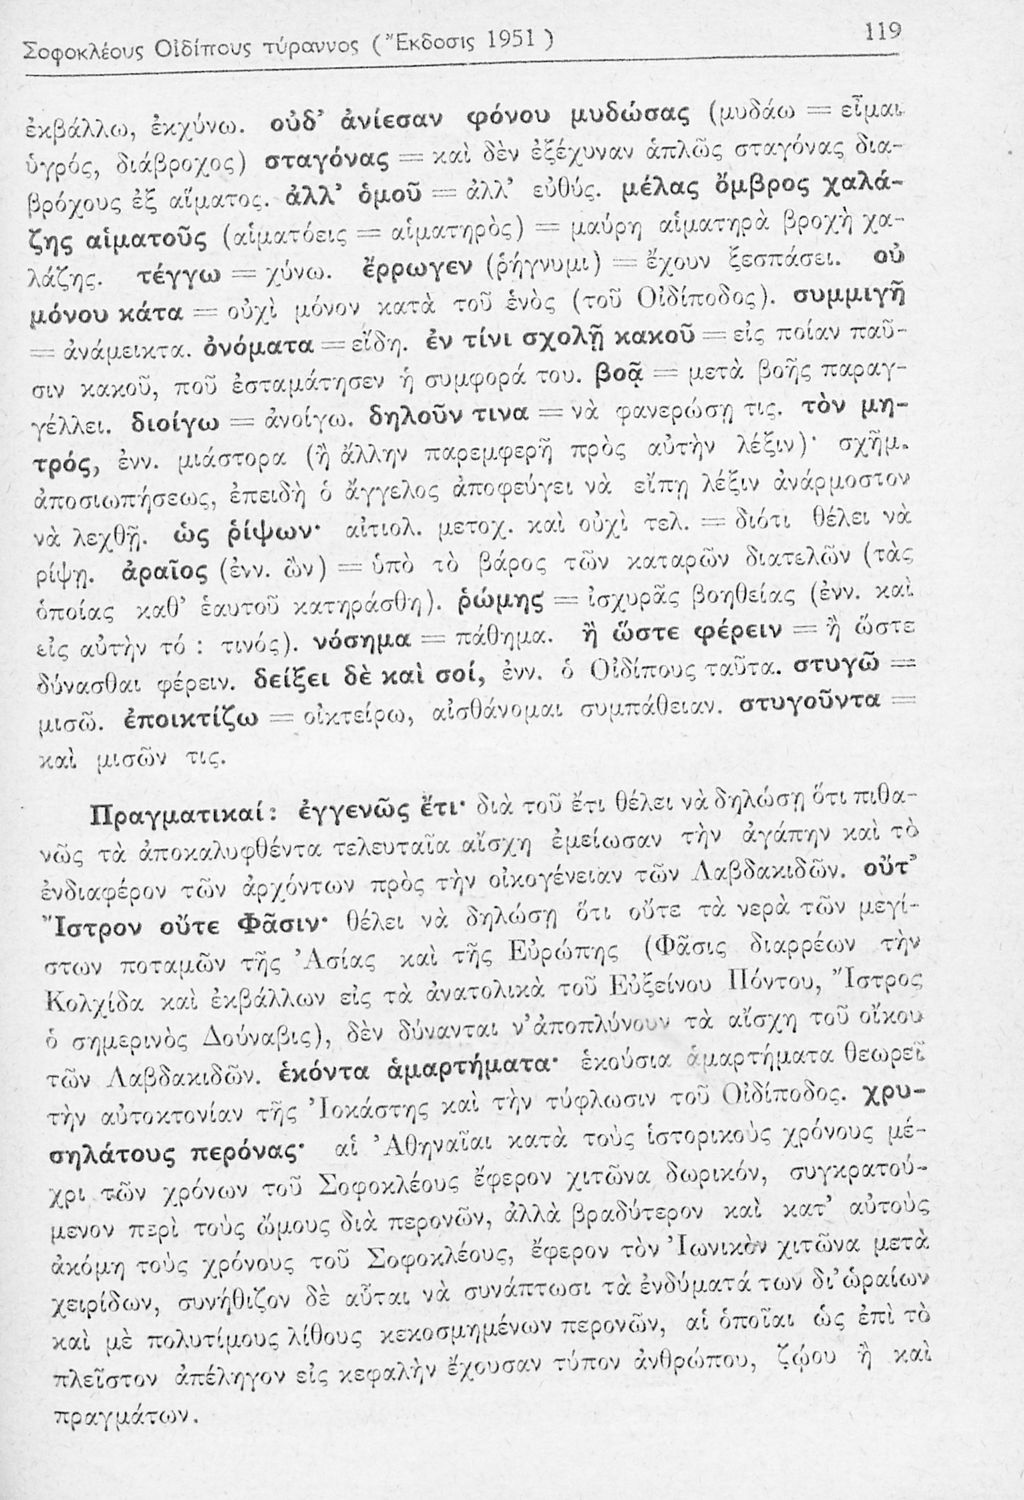 Σοφοκλέους Οἰδίπους τύραννος (Ἔκδοσις 1951)
119
ἐκβάλλω, ἐκχύνω. οὐδ’ ἀνίεσαν φόνου μυδώσας (μυδάω = εἶμαι
ὑγρός, διάβροχος) σταγόνας = καὶ δὲν ἐξέχυναν ἁπλῶς σταγόνας δια-
βρόχους ἐξ αἵματος. ἀλλ’ ὁμοῦ = ἀλλ’ εὐθύς. μέλας ὄμβρος χαλά-
ζης αἱματοῦς (αἱματόεις = αἱματηρὸς) = μαύρη αἱματηρὰ βροχὴ χα-
λάζης. τέγγω = χύνω. ἔρρωγεν (ῥήγνυμι) = ἔχουν ξεσπάσει. οὐ
μόνου κάτα = οὐχὶ μόνον κατὰ τοῦ ἑνὸς (τοῦ Οἰδίποδος). συμμιγῆ
= ἀνάμεικτα. ὀνόματα = εἴδη. ἐν τίνι σχολῇ κακοῦ = εἰς ποίαν παῦ-
σιν κακοῦ, ποῦ ἐσταμάτησεν ἡ συμφορά του. βοᾷ = μετὰ βοῆς παραγ-
γέλλει. διοίγω = ἀνοίγω. δηλοῦν τινα = νὰ φανερώσῃ τις. τὸν μη-
τρός, ἐνν. μιάστορα (ἢ ἄλλην παρεμφερῆ πρὸς αὐτὴν λέξιν)· σχῆμ.
ἀποσιωπήσεως, ἐπειδὴ ὁ ἄγγελος ἀποφεύγει νὰ εἴπῃ λέξιν ἀνάρμοστον
νὰ λεχθῇ. ὡς ῥίψων· αἰτιολ. μετοχ. καὶ οὐχὶ τελ. = διότι θέλει νὰ
ρίψῃ. ἀραῖος (ἐνν. ὢν) = ὑπὸ τὸ βάρος τῶν καταρῶν διατελῶν (τὰς
ὁποίας καθ’ ἑαυτοῦ κατηράσθη). ῥώμης = ἰσχυρᾶς βοηθείας (ἐνν. καὶ
εἰς αὐτὴν τό : τινός). νόσημα = πάθημα. ἢ ὥστε φέρειν = ἢ ὥστε
δύνασθαι φέρειν. δείξει δὲ καὶ σοί, ἐνν. ὁ Οἰδίπους ταῦτα. στυγῶ =
μισῶ. ἐποικτίζω = οἰκτείρω, αἰσθάνομαι συμπάθειαν. στυγοῦντα =
καὶ μισῶν τις.
Πραγματικαί: ἐγγενῶς ἔτι· διὰ τοῦ ἔτι θέλει νὰ δηλώσῃ ὅτι πιθα-
νῶς τὰ ἀποκαλυφθέντα τελευταῖα αἴσχη ἐμείωσαν τὴν ἀγάπην καὶ τὸ
ἐνδιαφέρον τῶν ἀρχόντων πρὸς τὴν οἰκογένειαν τῶν Λαβδακιδῶν. οὔτ’
Ἴστρον οὔτε Φᾶσιν· θέλει νὰ δηλώσῃ ὅτι οὔτε τὰ νερὰ τῶν μεγί-
στων ποταμῶν τῆς Ἀσίας καὶ τῆς Εὐρώπης (Φᾶσις διαρρέων τὴν
Κολχίδα καὶ ἐκβάλλων εἰς τὰ ἀνατολικὰ τοῦ Εὐξείνου Πόντου, Ἴστρος
ὁ σημερινὸς Δούναβις), δὲν δύνανται ν’ ἀποπλύνουν τὰ αἴσχη τοῦ οἴκου
τῶν Λαβδακιδῶν. ἑκόντα ἁμαρτήματα· ἑκούσια ἁμαρτήματα θεωρεῖ
τὴν αὐτοκτονίαν τῆς Ἰοκάστης καὶ τὴν τύφλωσιν τοῦ Οἰδίποδος. χρυ-
σηλάτους περόνας· αἱ Ἀθηναῖαι κατὰ τοὺς ἱστορικοὺς χρόνους μέ-
χρι τῶν χρόνων τοῦ Σοφοκλέους ἔφερον χιτῶνα δωρικόν, συγκρατού-
μενον περὶ τοὺς ὤμους διὰ περονῶν, ἀλλὰ βραδύτερον καὶ κατ’ αὐτοὺς
ἀκόμη τοὺς χρόνους τοῦ Σοφοκλέους, ἔφερον τὸν Ἰωνικὸν χιτῶνα μετὰ
χειρίδων, συνήθιζον δὲ αὗται νὰ συνάπτωσι τὰ ἐνδύματά των δι’ ὡραίων
καὶ μὲ πολυτίμους λίθους κεκοσμημένων περονῶν, αἱ ὁποῖαι ὡς ἐπὶ τὸ
πλεῖστον ἀπέληγον εἰς κεφαλὴν ἔχουσαν τύπον ἀνθρώπου, ζῴου ἢ καὶ
πραγμάτων.